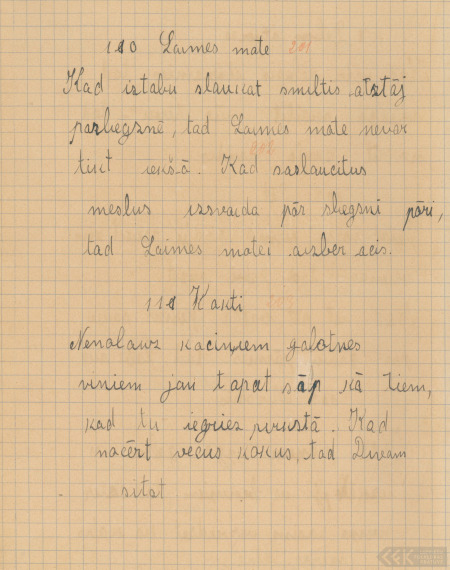 110 Laimes mate 201
Kad iztabu slaucat smiltis atstāj
pazliegznē, tad Laimes mate nevar
tikt iekšā. Kad saslaucitus
meslus izsvaida pār sliegsni pāri,
tad Laimes matei aizber acis.
111 Kakti
Nenolauz kaciņiem galotnes
viniem jau tapat sāp kā tiem,
kad tu iegriez pirkstā. Kad
nocērt vecus kokus, tad Dievam
sitat